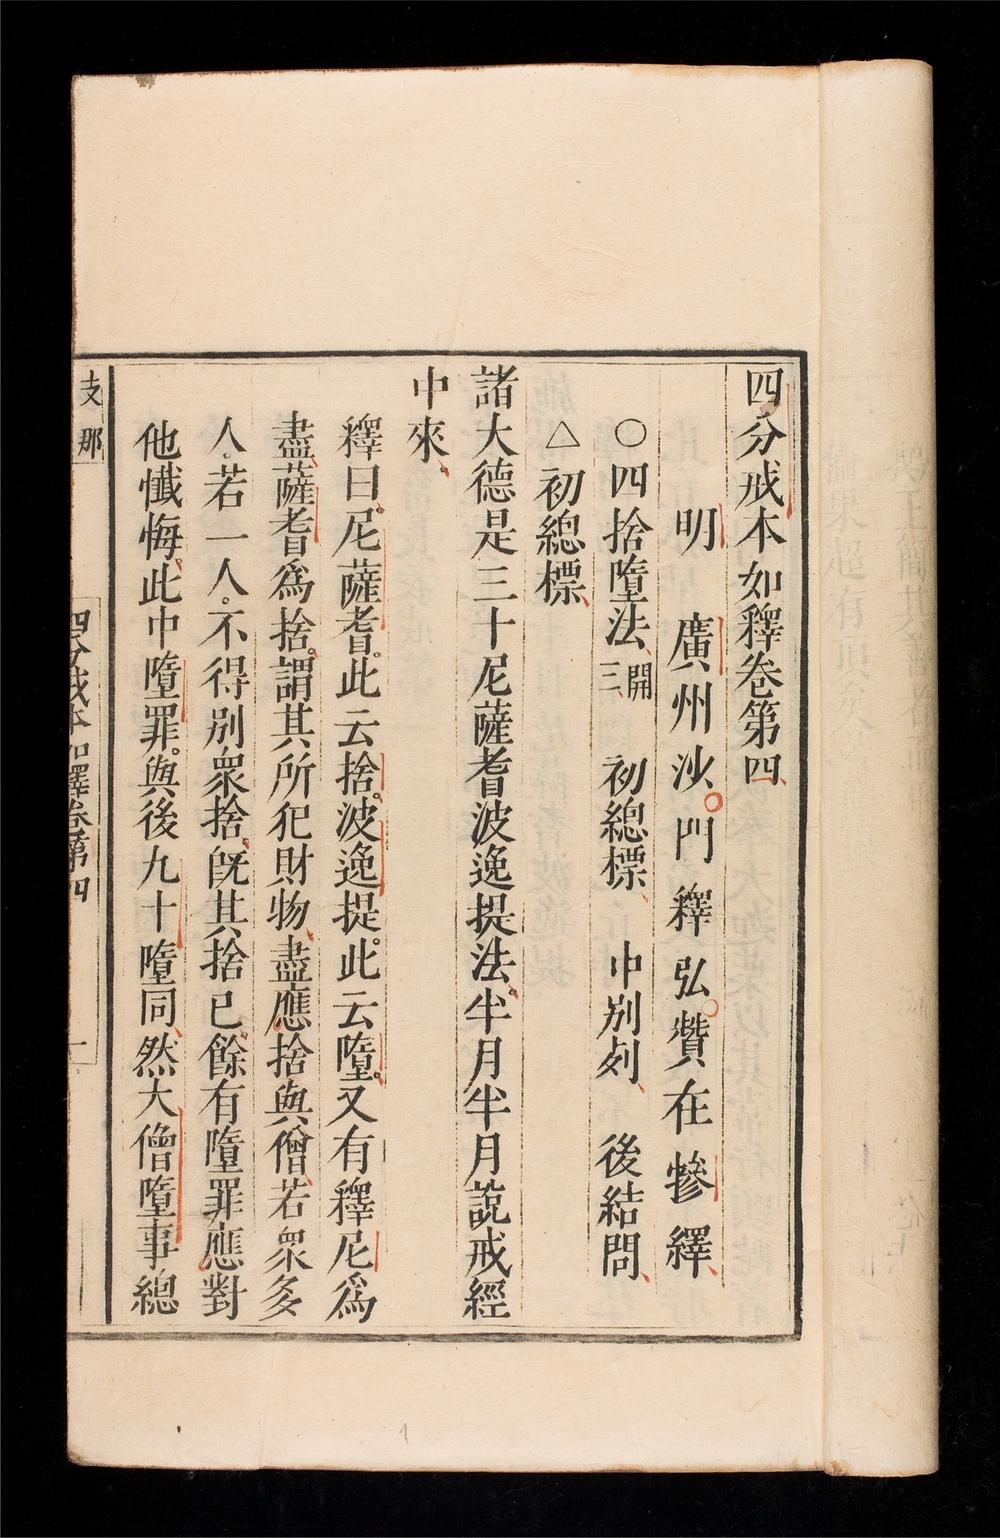 四分戒本如釋卷第四
明 廣州沙門釋弘贊在犙繹
○四捨墮法開三 初總標 中別列 後結問
△初總標
諸大德是三十尼薩耆波逸提法半月半月說戒經
中來
釋曰尼薩耆此云捨波逸提此云墮又有釋尼為
盡薩耆為捨謂其所犯財物盡應捨與僧若眾多
人若一人不得別眾捨既其捨已餘有墮罪應對
他懺悔此中墮罪與後九十墮同然大僧墮事總
支那
四分戒本如釋卷第四
一